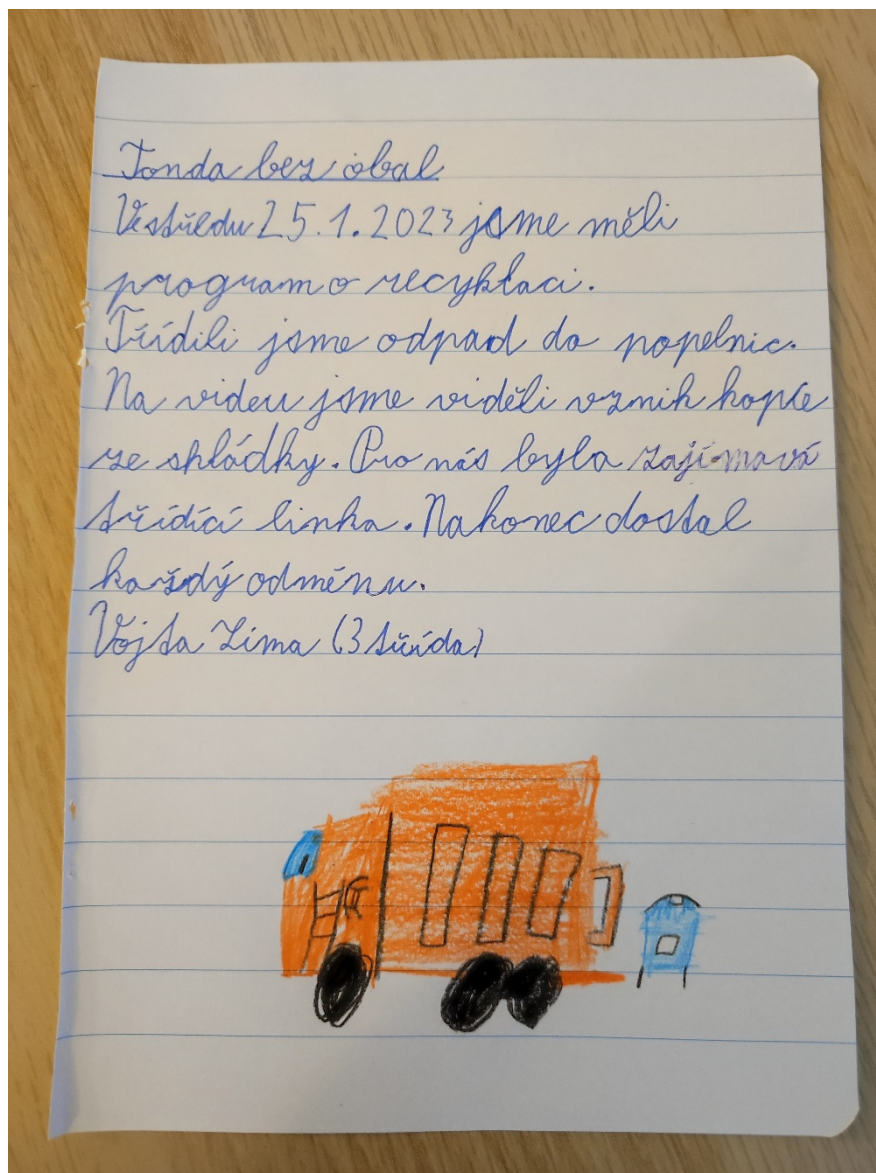 Tonda bez obal
Ve středu 25.1.2023 jsme měli
program o recyklaci.
Třídili jsme odpad do popelnic.
Na videu jsme viděli vznik kopce
ze skládky. Pro nás byla zajímavá
třídící linka. Nakonec dostal
každý odměnu.
Vojta Zima (3 třída)